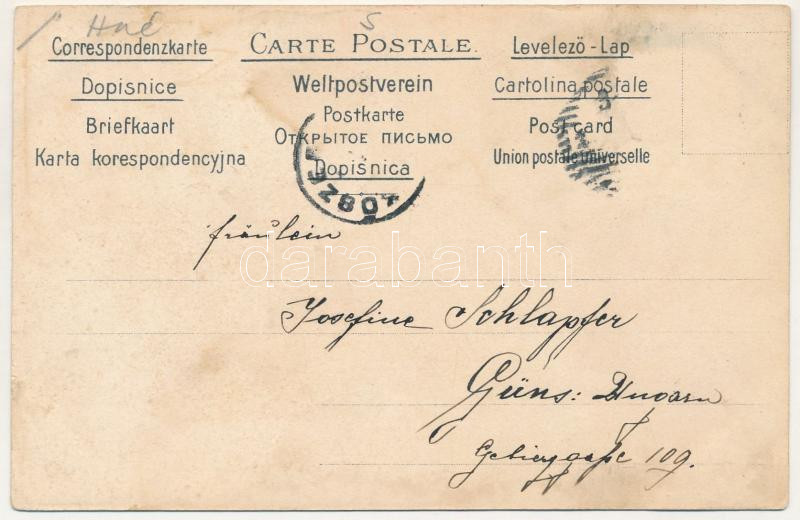 Hné
5
Correspondenzkarte
CARTE POSTALE.
Levelező-Lap
Dopisnice
Weltpostverein
Cartolina postale
Briefkaart
Postkarte
Post card
Karta korespondencyjna
ОТКРЫТОЕ ПИСЬМО
Union postale universelle
Dopisnica
KŐSZEG
fräulein
darabanth
Josefine Schlapfer
Güns: Ungarn
109.